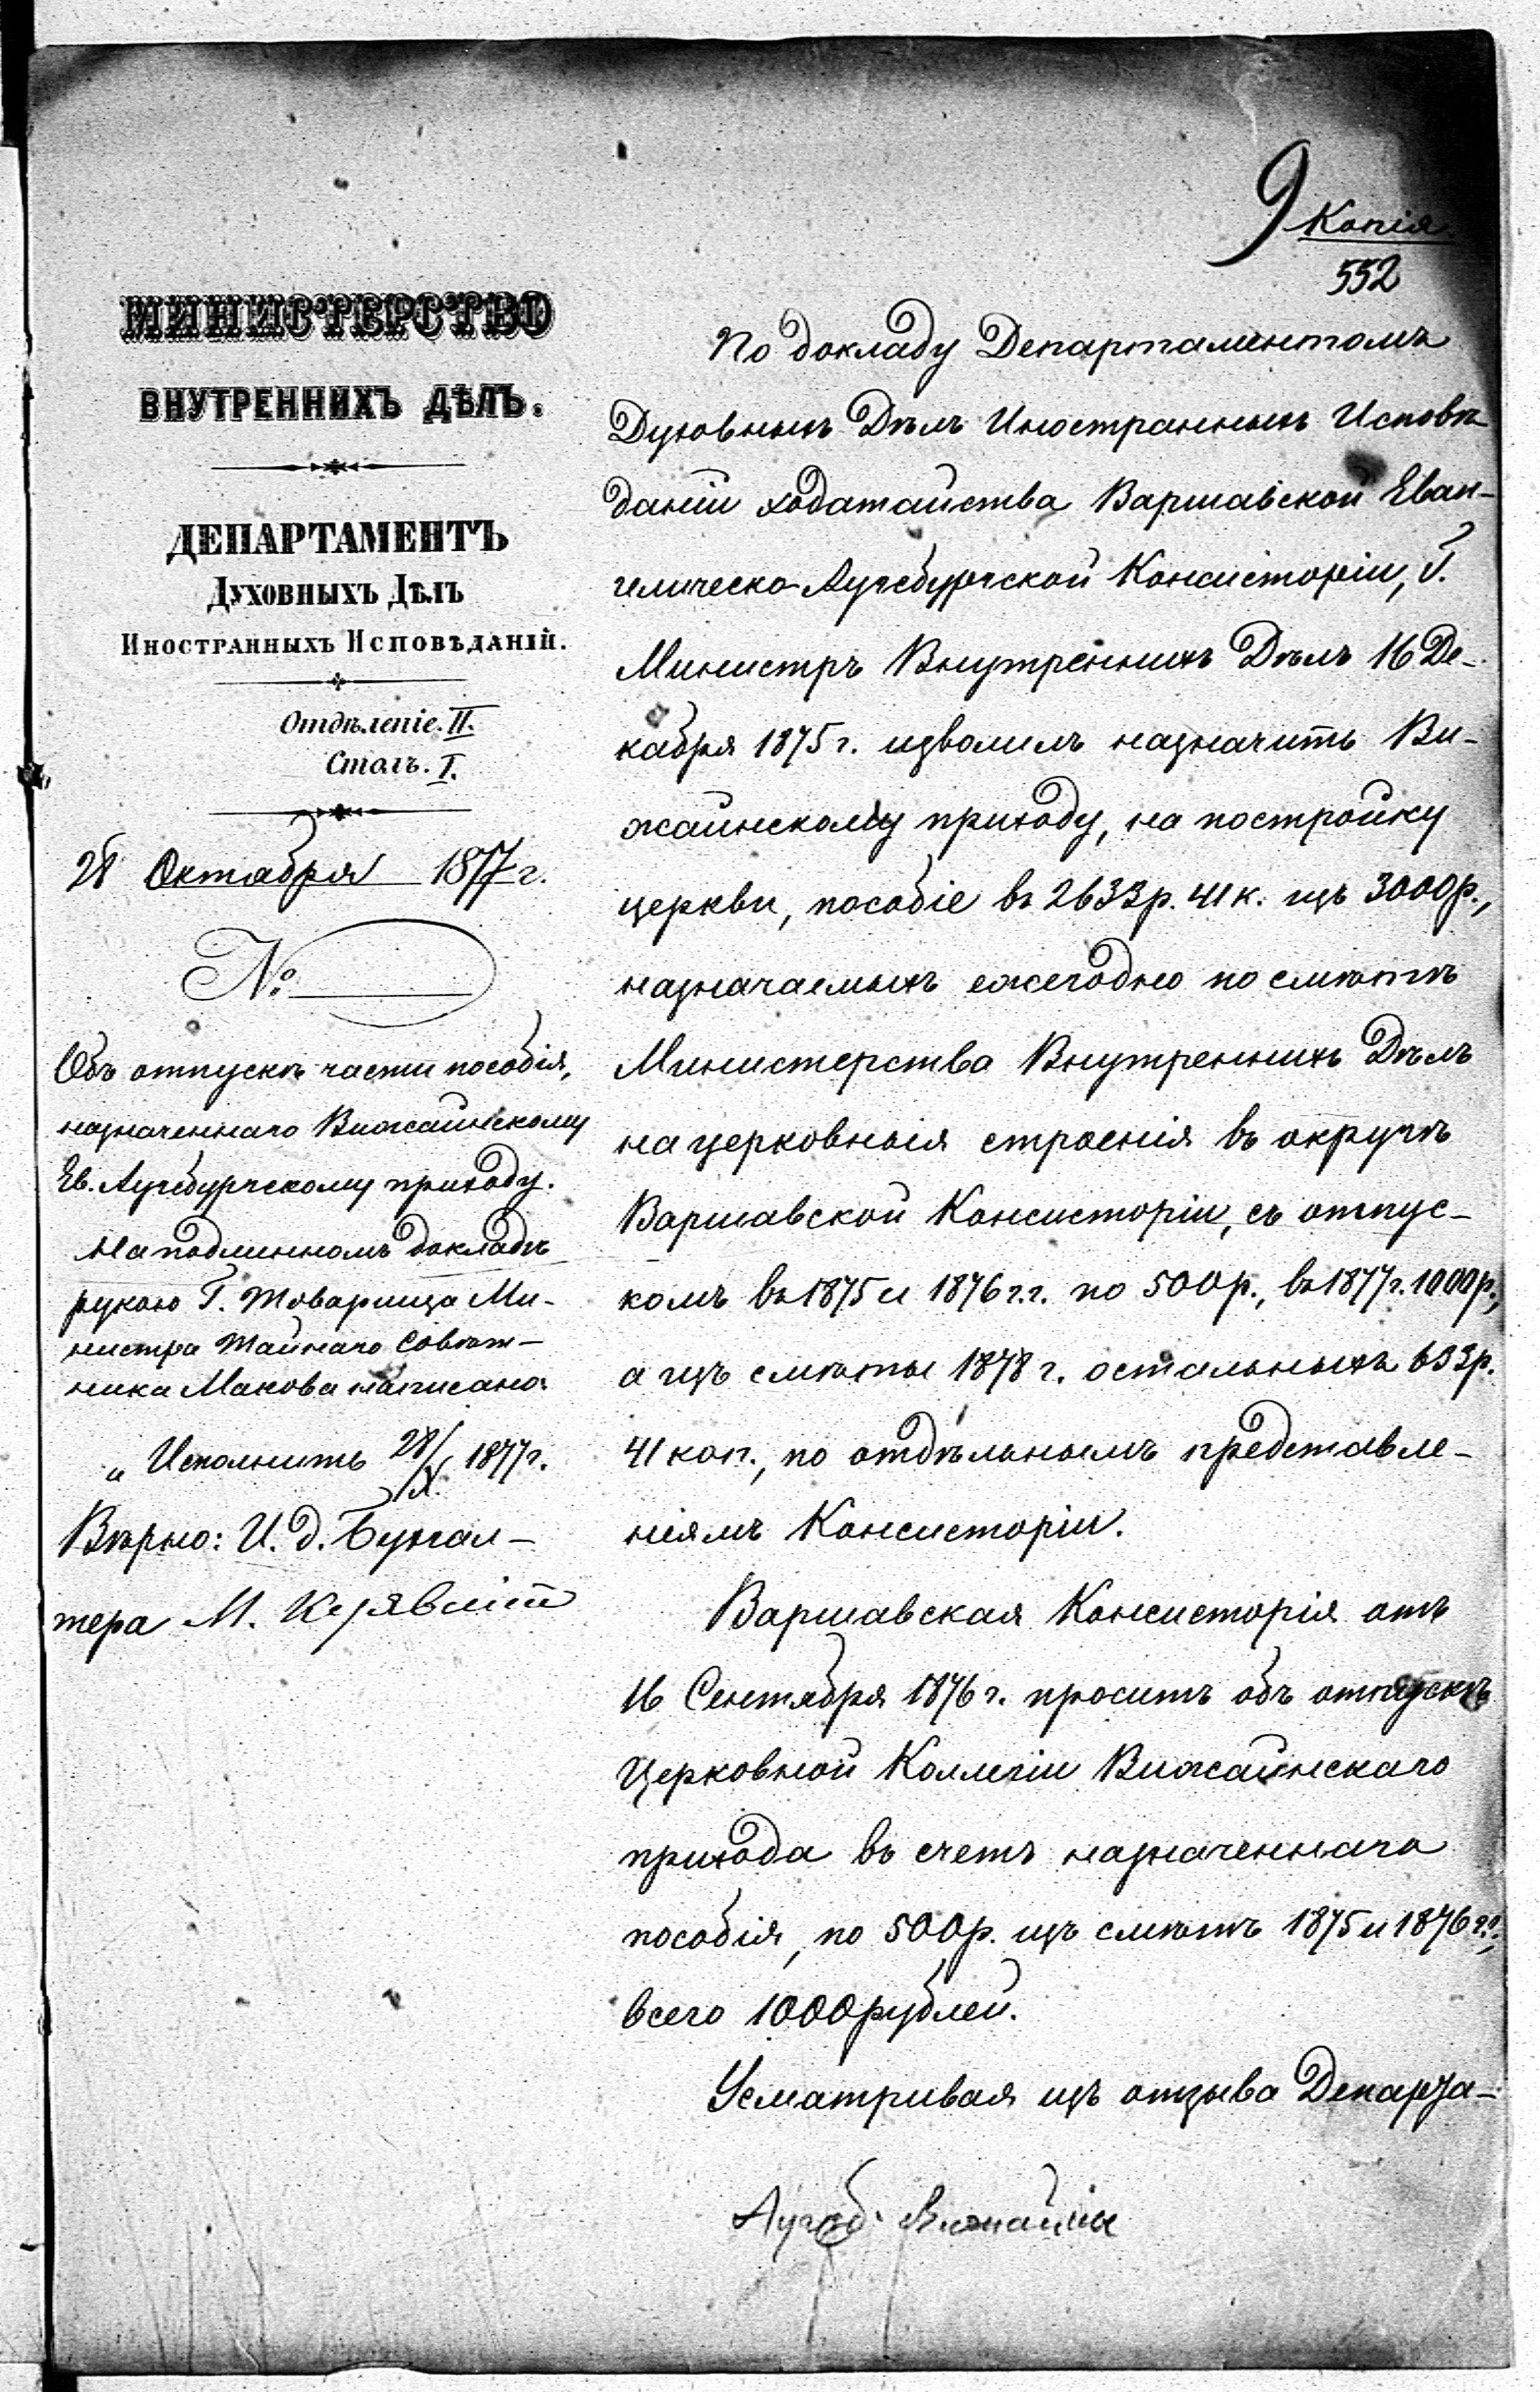 9 Копія.
552
МИНИСТЕРСТВО
ВНУТРЕННИХЪ ДѢЛЪ.
ДЕПАРТАМЕНТЪ
ДУХОВНЫХЪ ДѢЛЪ
ИНОСТРАННЫХЪ ИСПОВѢДАНІЙ.
Отдѣленіе. II.
Столъ. I.
28 Октября 1877 г.
№
Объ отпускѣ части пособія,
назначеннаго Вижайнскому
Ев. Аугсбургскому приходу.
На подлинномъ докладѣ
рукою Г. Товарища Ми-
нистра Тайнаго Совѣт-
ника Макова написано:
„Исполнить 28/X. 1877 г.
Вѣрно: И. д. Бухгал-
тера М.
По докладу Департаментомъ
Духовныхъ Дѣлъ Иностранныхъ Исповѣ-
даній ходатайства Варшавской Еван-
гелическо-Аугсбургской Консисторіи, Г.
Министръ Внутреннихъ Дѣлъ 16 Де-
кабря 1875 г. изволилъ назначить Ви-
жайнскому приходу, на постройку
церкви, пособіе въ 2633 р. 41 к. изъ 3000 р.,
назначаемыхъ ежегодно по смѣтѣ
Министерства Внутреннихъ Дѣлъ
на церковныя строенія въ округѣ
Варшавской Консисторіи, съ отпус-
комъ въ 1875 и 1876 г.г. по 500 р., въ 1877 г. 1000 р.,
а изъ смѣты 1878 г. остальныхъ 633 р.
41 коп., по отдѣльнымъ представле-
ніямъ Консисторіи.
Варшавская Консисторія отъ
16 Сентября 1876 г. проситъ объ отпускѣ
Церковной Коллегіи Вижайнскаго
прихода въ счетъ назначеннаго
пособія, по 500 р. изъ смѣтъ 1875 и 1876 г.г.,
всего 1000 рублей.
Усматривая изъ отзыва Департа-